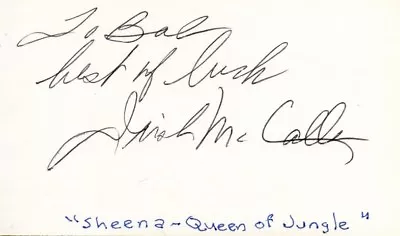 To Bob
best of luck
Irish McCalla
"Sheena - Queen of Jungle"